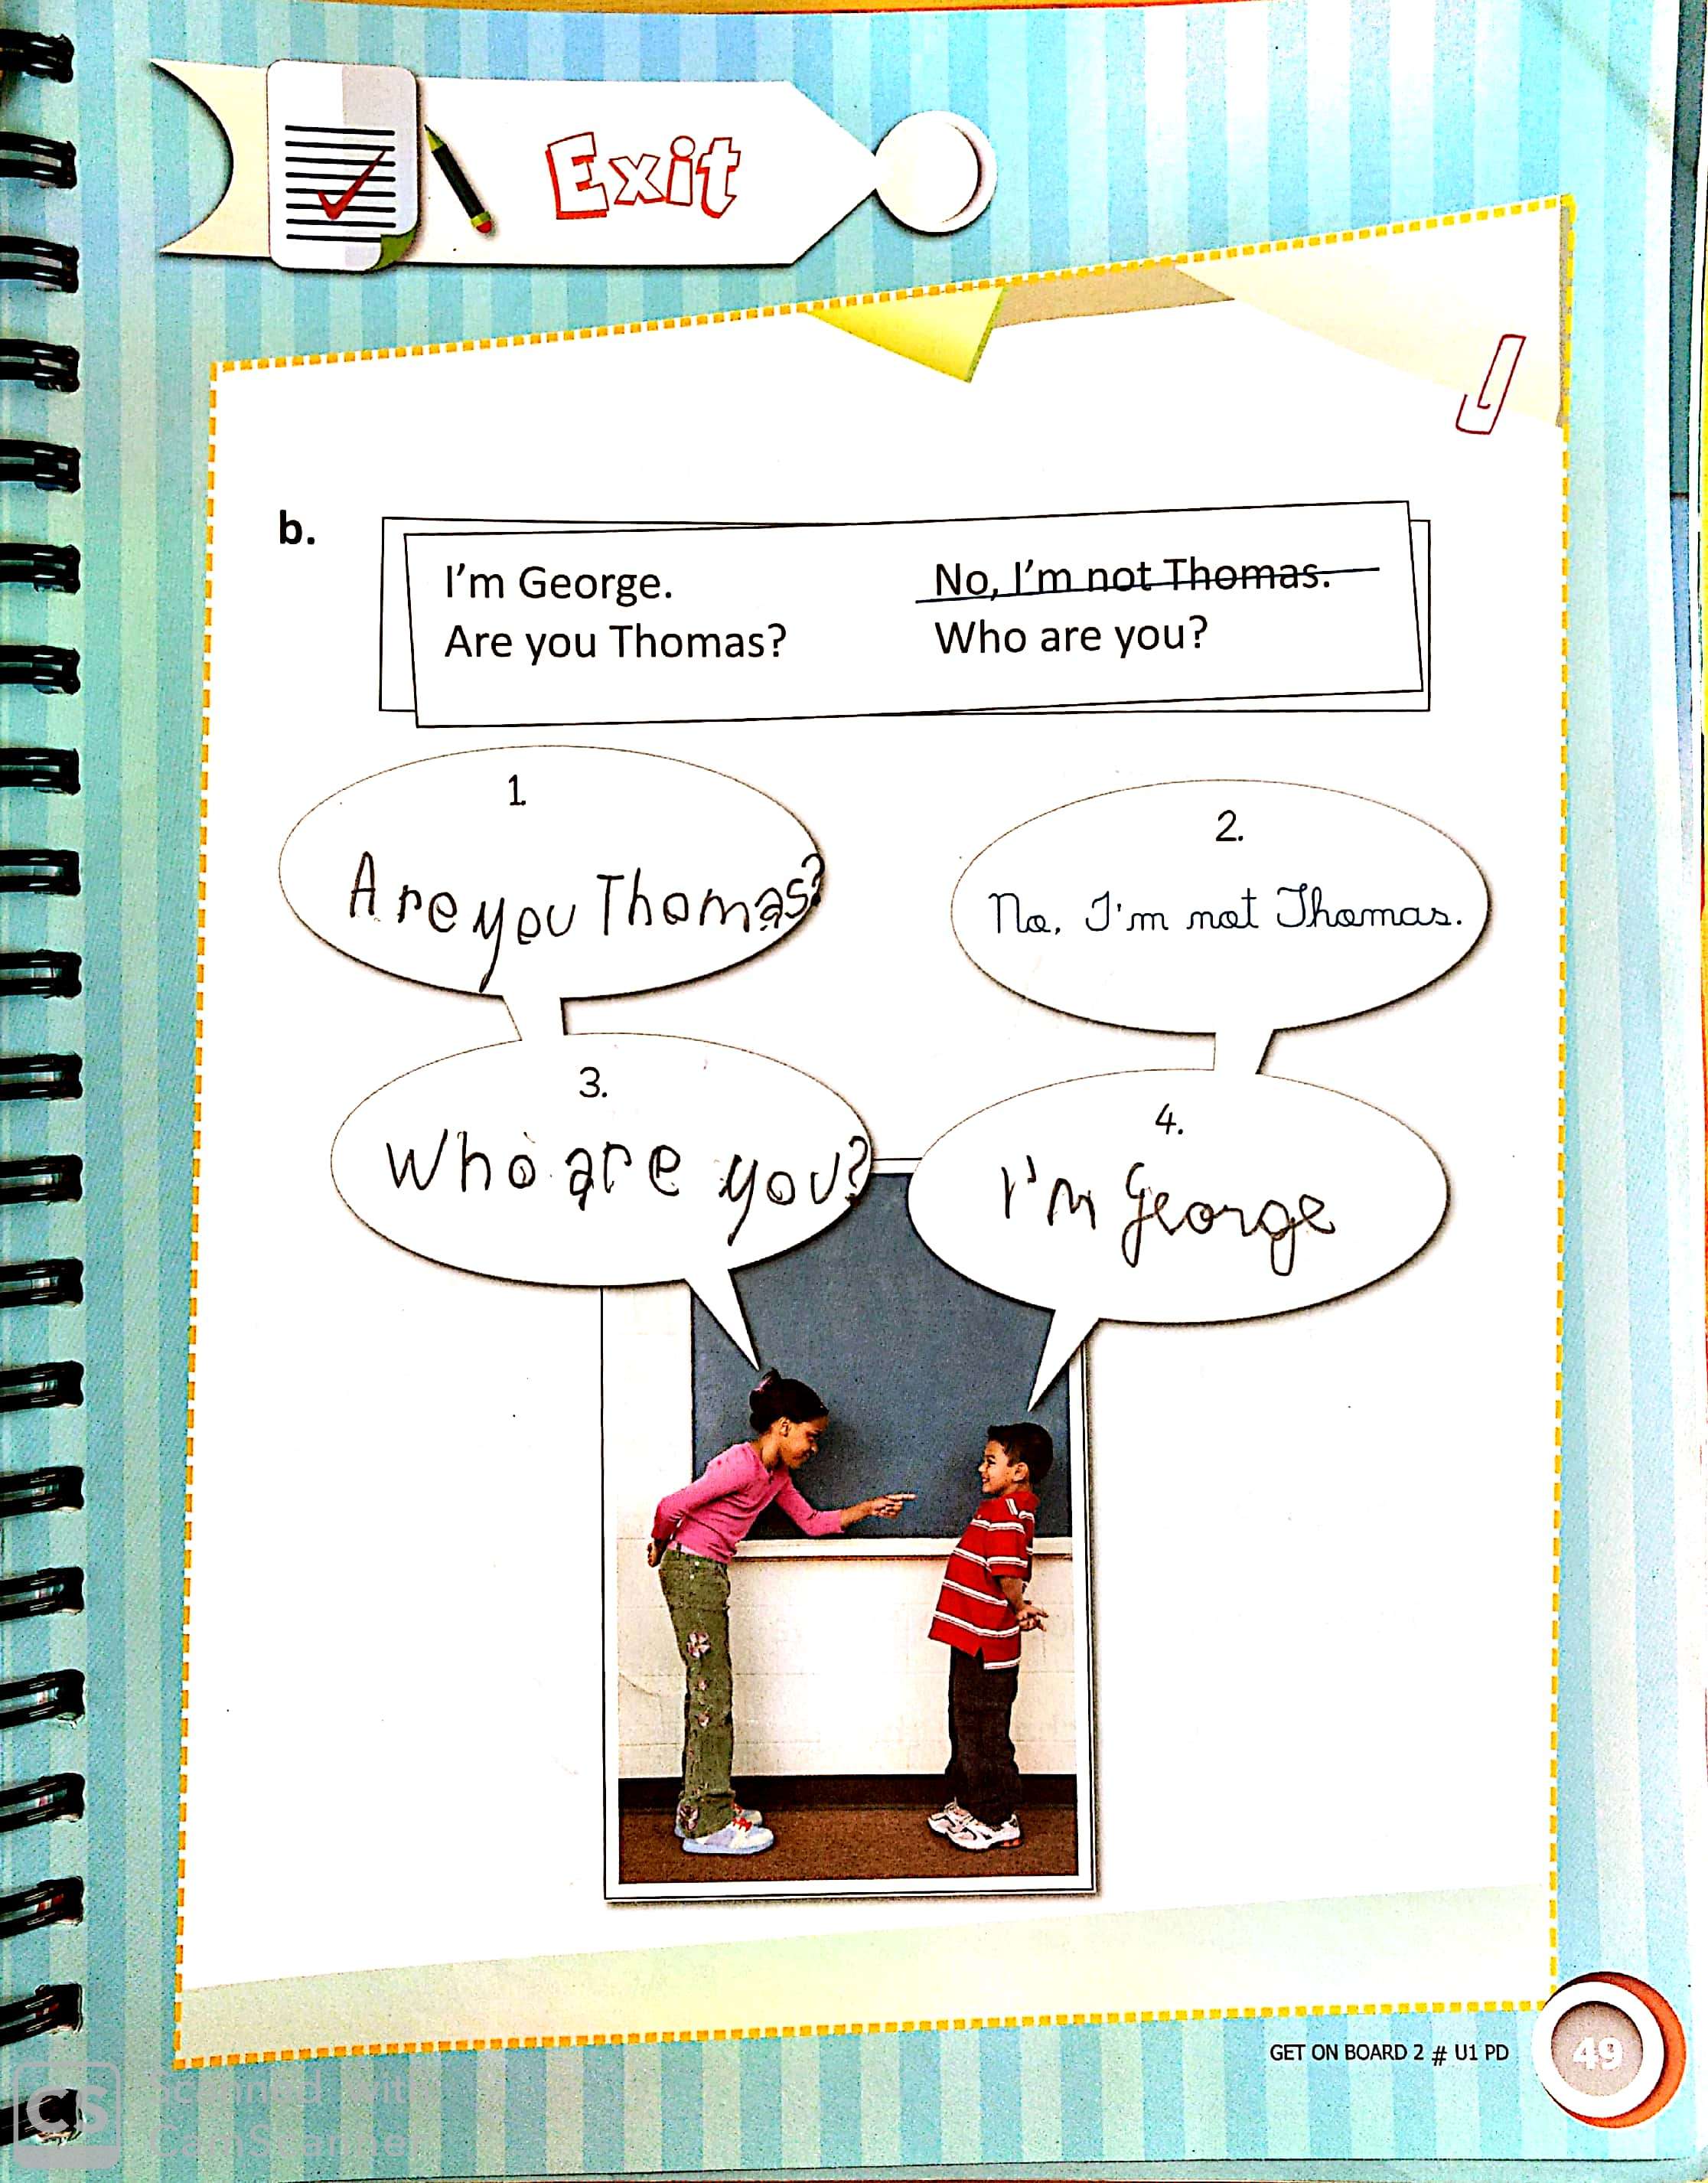 Exit
b.
I'm George.
No, I'm not Thomas.
Are you Thomas?
Who are you?
1.
Are you Thomas?
2.
No, I'm not Thomas.
3.
Who are you?
4.
I'm George
GET ON BOARD 2 # U1 PD
49
CS
Scanned with
CamScanner